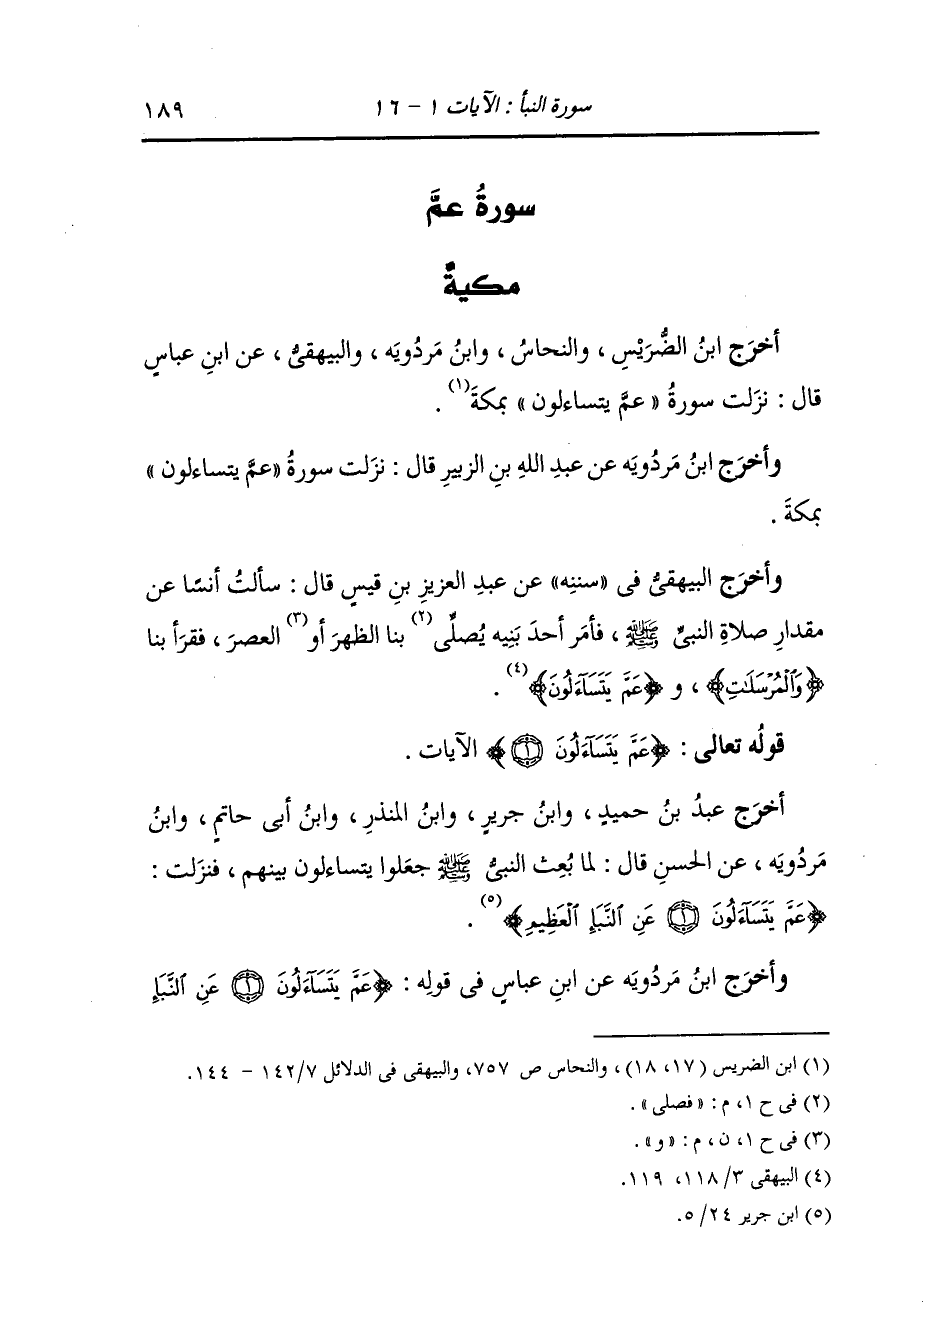 سورة النبأ : الآيات ١ - ١٦ ١٨٩
سورةُ عمَّ
مكيةٌ
أخرَج ابنُ الضُّرَيْسِ ، والنحاسُ ، وابنُ مَردُويَه ، والبيهقىُّ ، عن ابنِ عباسٍ
قال : نزَلت سورةُ « عمَّ يتساءلون » بمكةَ(١) .
وأخرَج ابنُ مَردُويَه عن عبدِ اللهِ بنِ الزبيرِ قال : نزَلت سورةُ «عمَّ يتساءلون »
بمكةَ .
وأخرَج البيهقىُّ فى «سننِه» عن عبدِ العزيزِ بنِ قيسٍ قال : سألتُ أنسًا عن
مقدارِ صلاةِ النبىِّ ﷺ ، فأمَر أحدَ بَنِيه يُصلِّى(٢) بنا الظهرَ أو(٣) العصرَ ، فقرَأ بنا
﴿وَٱلْمُرْسَلَٰتِ﴾ ، و ﴿عَمَّ يَتَسَآءَلُونَ﴾(٤) .
قولُه تعالى : ﴿عَمَّ يَتَسَآءَلُونَ ۝١﴾ الآيات .
أخرَج عبدُ بنُ حميدٍ ، وابنُ جريرٍ ، وابنُ المنذرِ ، وابنُ أبى حاتمٍ ، وابنُ
مَردُويَه ، عن الحسنِ قال : لما بُعِث النبىُّ ﷺ جعَلوا يتساءلون بينهم ، فنزَلت :
﴿عَمَّ يَتَسَآءَلُونَ ۝١ عَنِ ٱلنَّبَإِ ٱلْعَظِيمِ﴾(٥) .
وأخرَج ابنُ مَردُويَه عن ابنِ عباسٍ فى قولِه : ﴿عَمَّ يَتَسَآءَلُونَ ۝١ عَنِ ٱلنَّبَإِ
(١) ابن الضريس (١٧، ١٨) ، والنحاس ص ٧٥٧، والبيهقى فى الدلائل ١٤٢/٧ - ١٤٤.
(٢) فى ح ١، م : « فصلى » .
(٣) فى ح ١، ن ، م : « و » .
(٤) البيهقى ١١٨/٣، ١١٩.
(٥) ابن جرير ٥/٢٤.